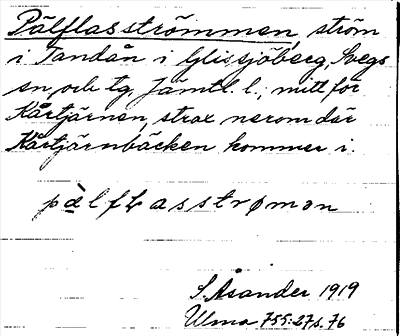 Pälflasströmmen, ström
i Tandån i Glissjöberg, Svegs
sn, och tg, Jämtl. l., mitt för
Kärtjärnen, strax nerom där
Kärtjärnbäcken kommer i.
pàlfłasstrømən
S. Åsander 1919
Ulma 755:27, s. 76